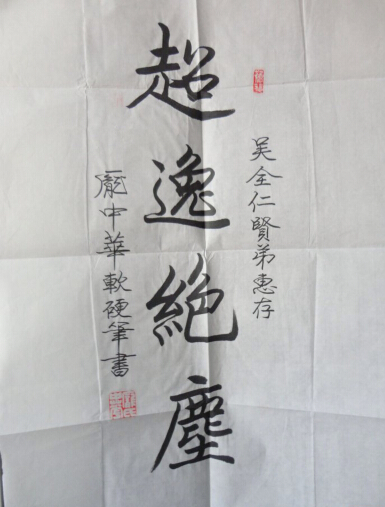 吴全仁賢弟惠存
超逸絶塵
龐中華軟硬筆書